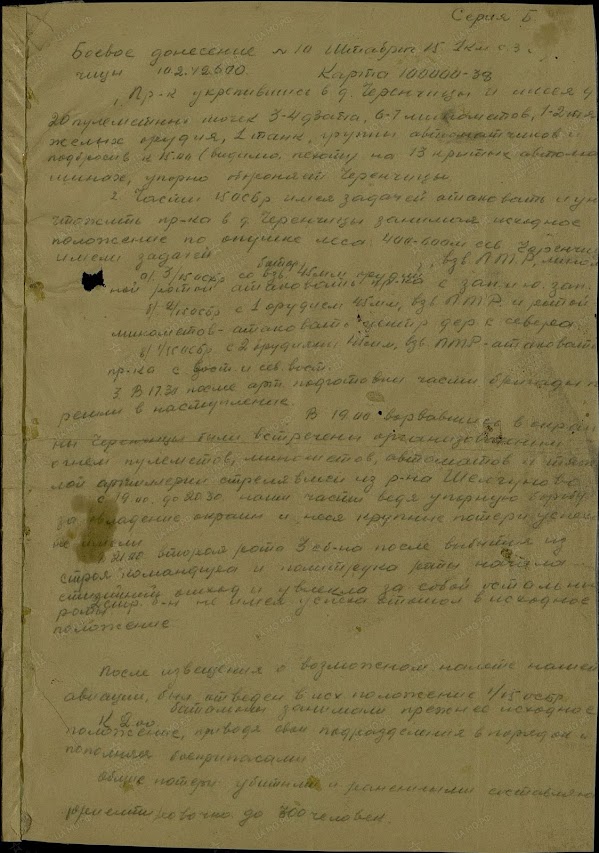 Серия Б
Боевое донесение № 10 Штабриг 15 1 км с.з.
чицы 10.2.42 Карта 100000-38
1. Пр-к укрепившись в д. Черенчицы и имея д
20 пулеметных точек 3-4 дзота, 6-7 минометов, 1-2 тя
желых орудия, 1 танк, группы автоматчиков и
подбросив к 15.00 (видимо пехоту на 13 крытых автома
шинах, упорно обороняет Черенчицы.
2. Части 15 осбр имея задачей атаковать и ун
ичтожить пр-ка в д. Черенчицы занимая исходное
положение по опушке леса 400-600 м сев. Черенчиц
имели задачей
а) 3/15 осбр со взв. 45 мм орудий, взв. ПТР, мином
ной ротой атаковать пр-ка с зап. и ю. зап.
б) 2/15 осбр с 1 орудием 45 мм, взв ПТР и ротой
минометов - атаковать центр дер. с севера.
в) 1/15 осбр с 2 орудиями 45 мм, взв. ПТР - атаковать
пр-ка с вост. и сев. вост.
3. В 17.30 после арт. подготовки части бригады пе
решли в наступление.
В 19.00 ворвавшись в окраи
ны Черенчицы были встречены организованным
огнем пулеметов, минометов, автоматов и тяже
лой артиллерии стрелявшей из р-на Шенгуново
С 19.00 до 20.30 наши части ведя упорную борьбу
за овладение окраин и неся крупные потери успеха
не имели
21.00 вторая рота 3 сб-на после выбытия из
строя командира и политрука роты начала
отход и увлекла за собой остальные
роты. б-н не имея успеха отошел в исходное
положение
После извещения о возможном налете нашей
авиации, был отведен в исх положение 1/15 осбр.
К 2.00 батальоны занимали прежнее исходное
положение, приводя свои подразделения в порядок и
пополняя боеприпасами
Общие потери убитыми и ранеными составляют
ориентировочно до 300 человек.